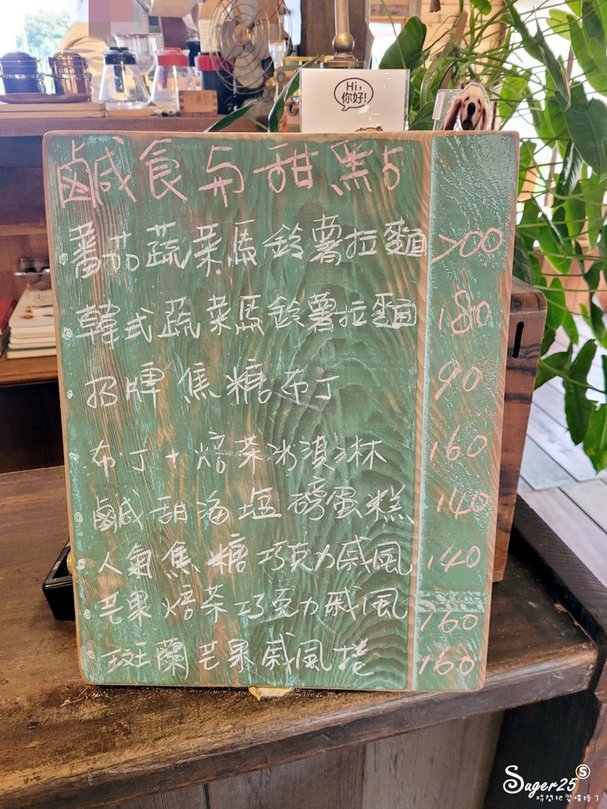 Hi,
你好!
鹹食與甜點
番茄蔬菜馬鈴薯拉麵 200
韓式蔬菜馬鈴薯拉麵 180
招牌焦糖布丁 90
布丁+焙茶冰淇淋 160
鹹甜海塩磅蛋糕 140
人氣焦糖巧克力戚風 140
芒果焙茶巧克力戚風 160
斑蘭芒果戚風捲 160
Suger25 S